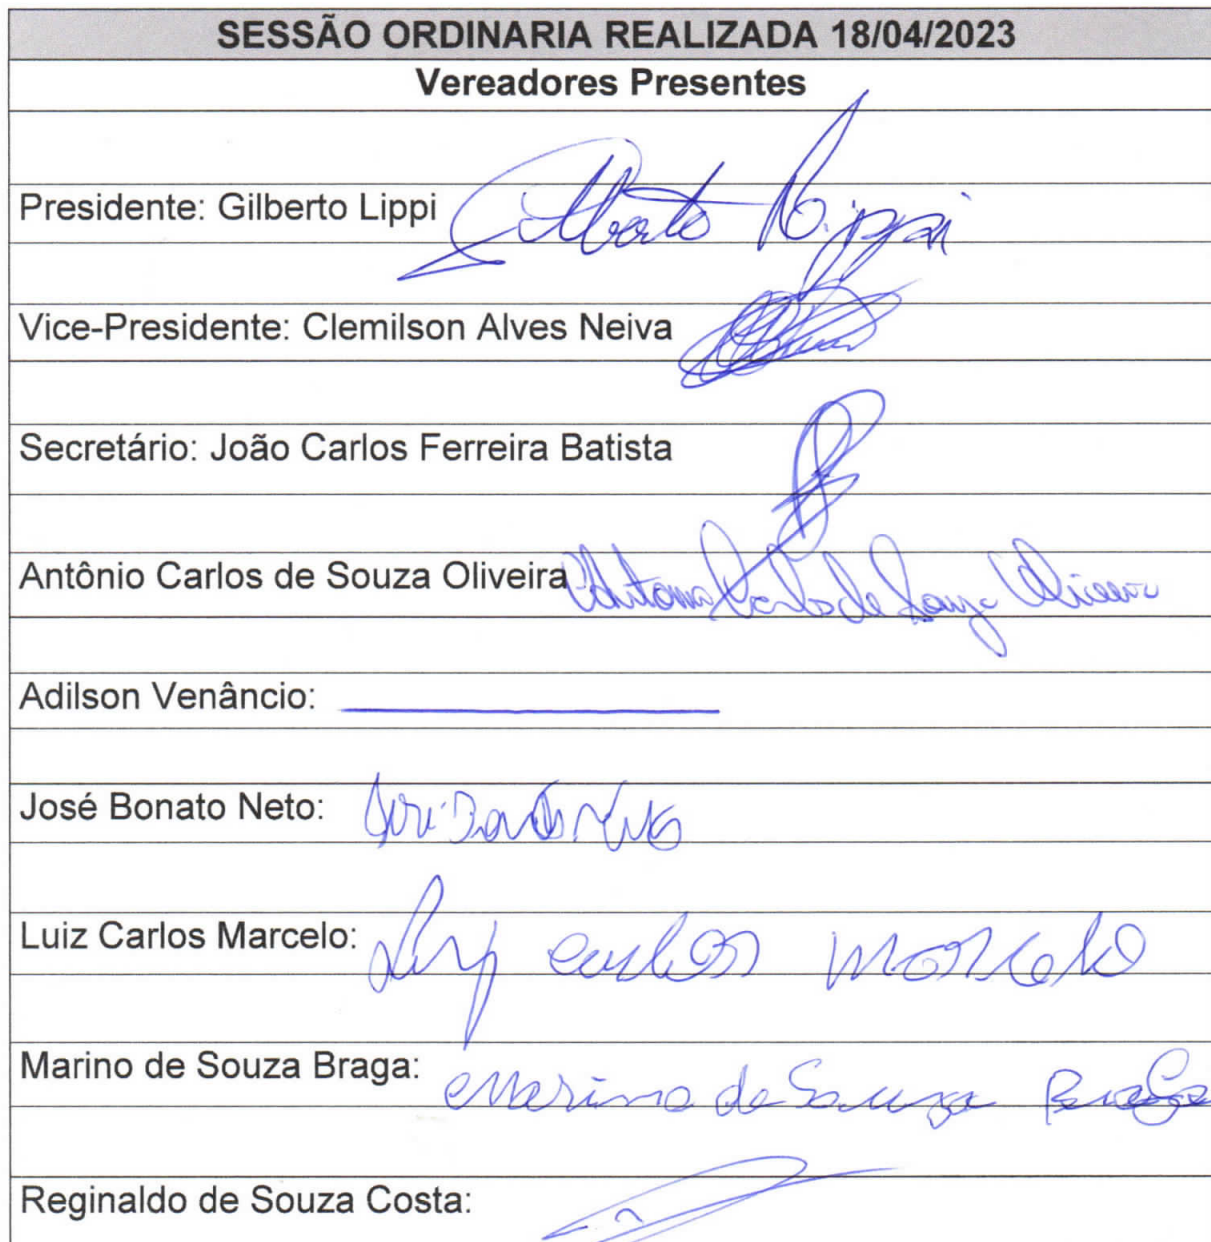 SESSÃO ORDINARIA REALIZADA 18/04/2023
Vereadores Presentes
Presidente: Gilberto Lippi Gilberto Lippi
Vice-Presidente: Clemilson Alves Neiva
Secretário: João Carlos Ferreira Batista
Antônio Carlos de Souza Oliveira Antonio Carlos de Souza Oliveira
Adilson Venâncio:
José Bonato Neto: José Bonato Neto
Luiz Carlos Marcelo: Luiz Carlos Marcelo
Marino de Souza Braga: Marino de Souza Braga
Reginaldo de Souza Costa: